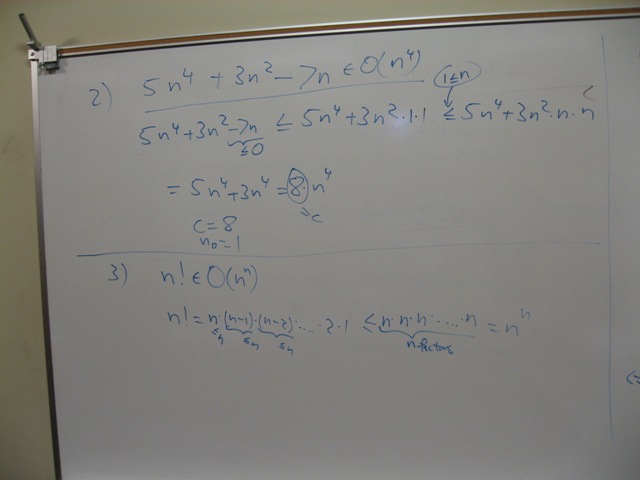 2) 5n⁴ + 3n² - 7n ∈ O(n⁴)
1≤n
5n⁴ + 3n² - 7n ≤ 5n⁴ + 3n² · 1 · 1 ≤ 5n⁴ + 3n² · n · n
≤0
= 5n⁴ + 3n⁴ = 8 · n⁴
= c
c = 8
n₀ = 1
3) n! ∈ O(nⁿ)
n! = n · (n-1) · (n-2) · ... · 2 · 1 ≤ n · n · n · ... · n = nⁿ
≤n ≤n ≤n n-factors